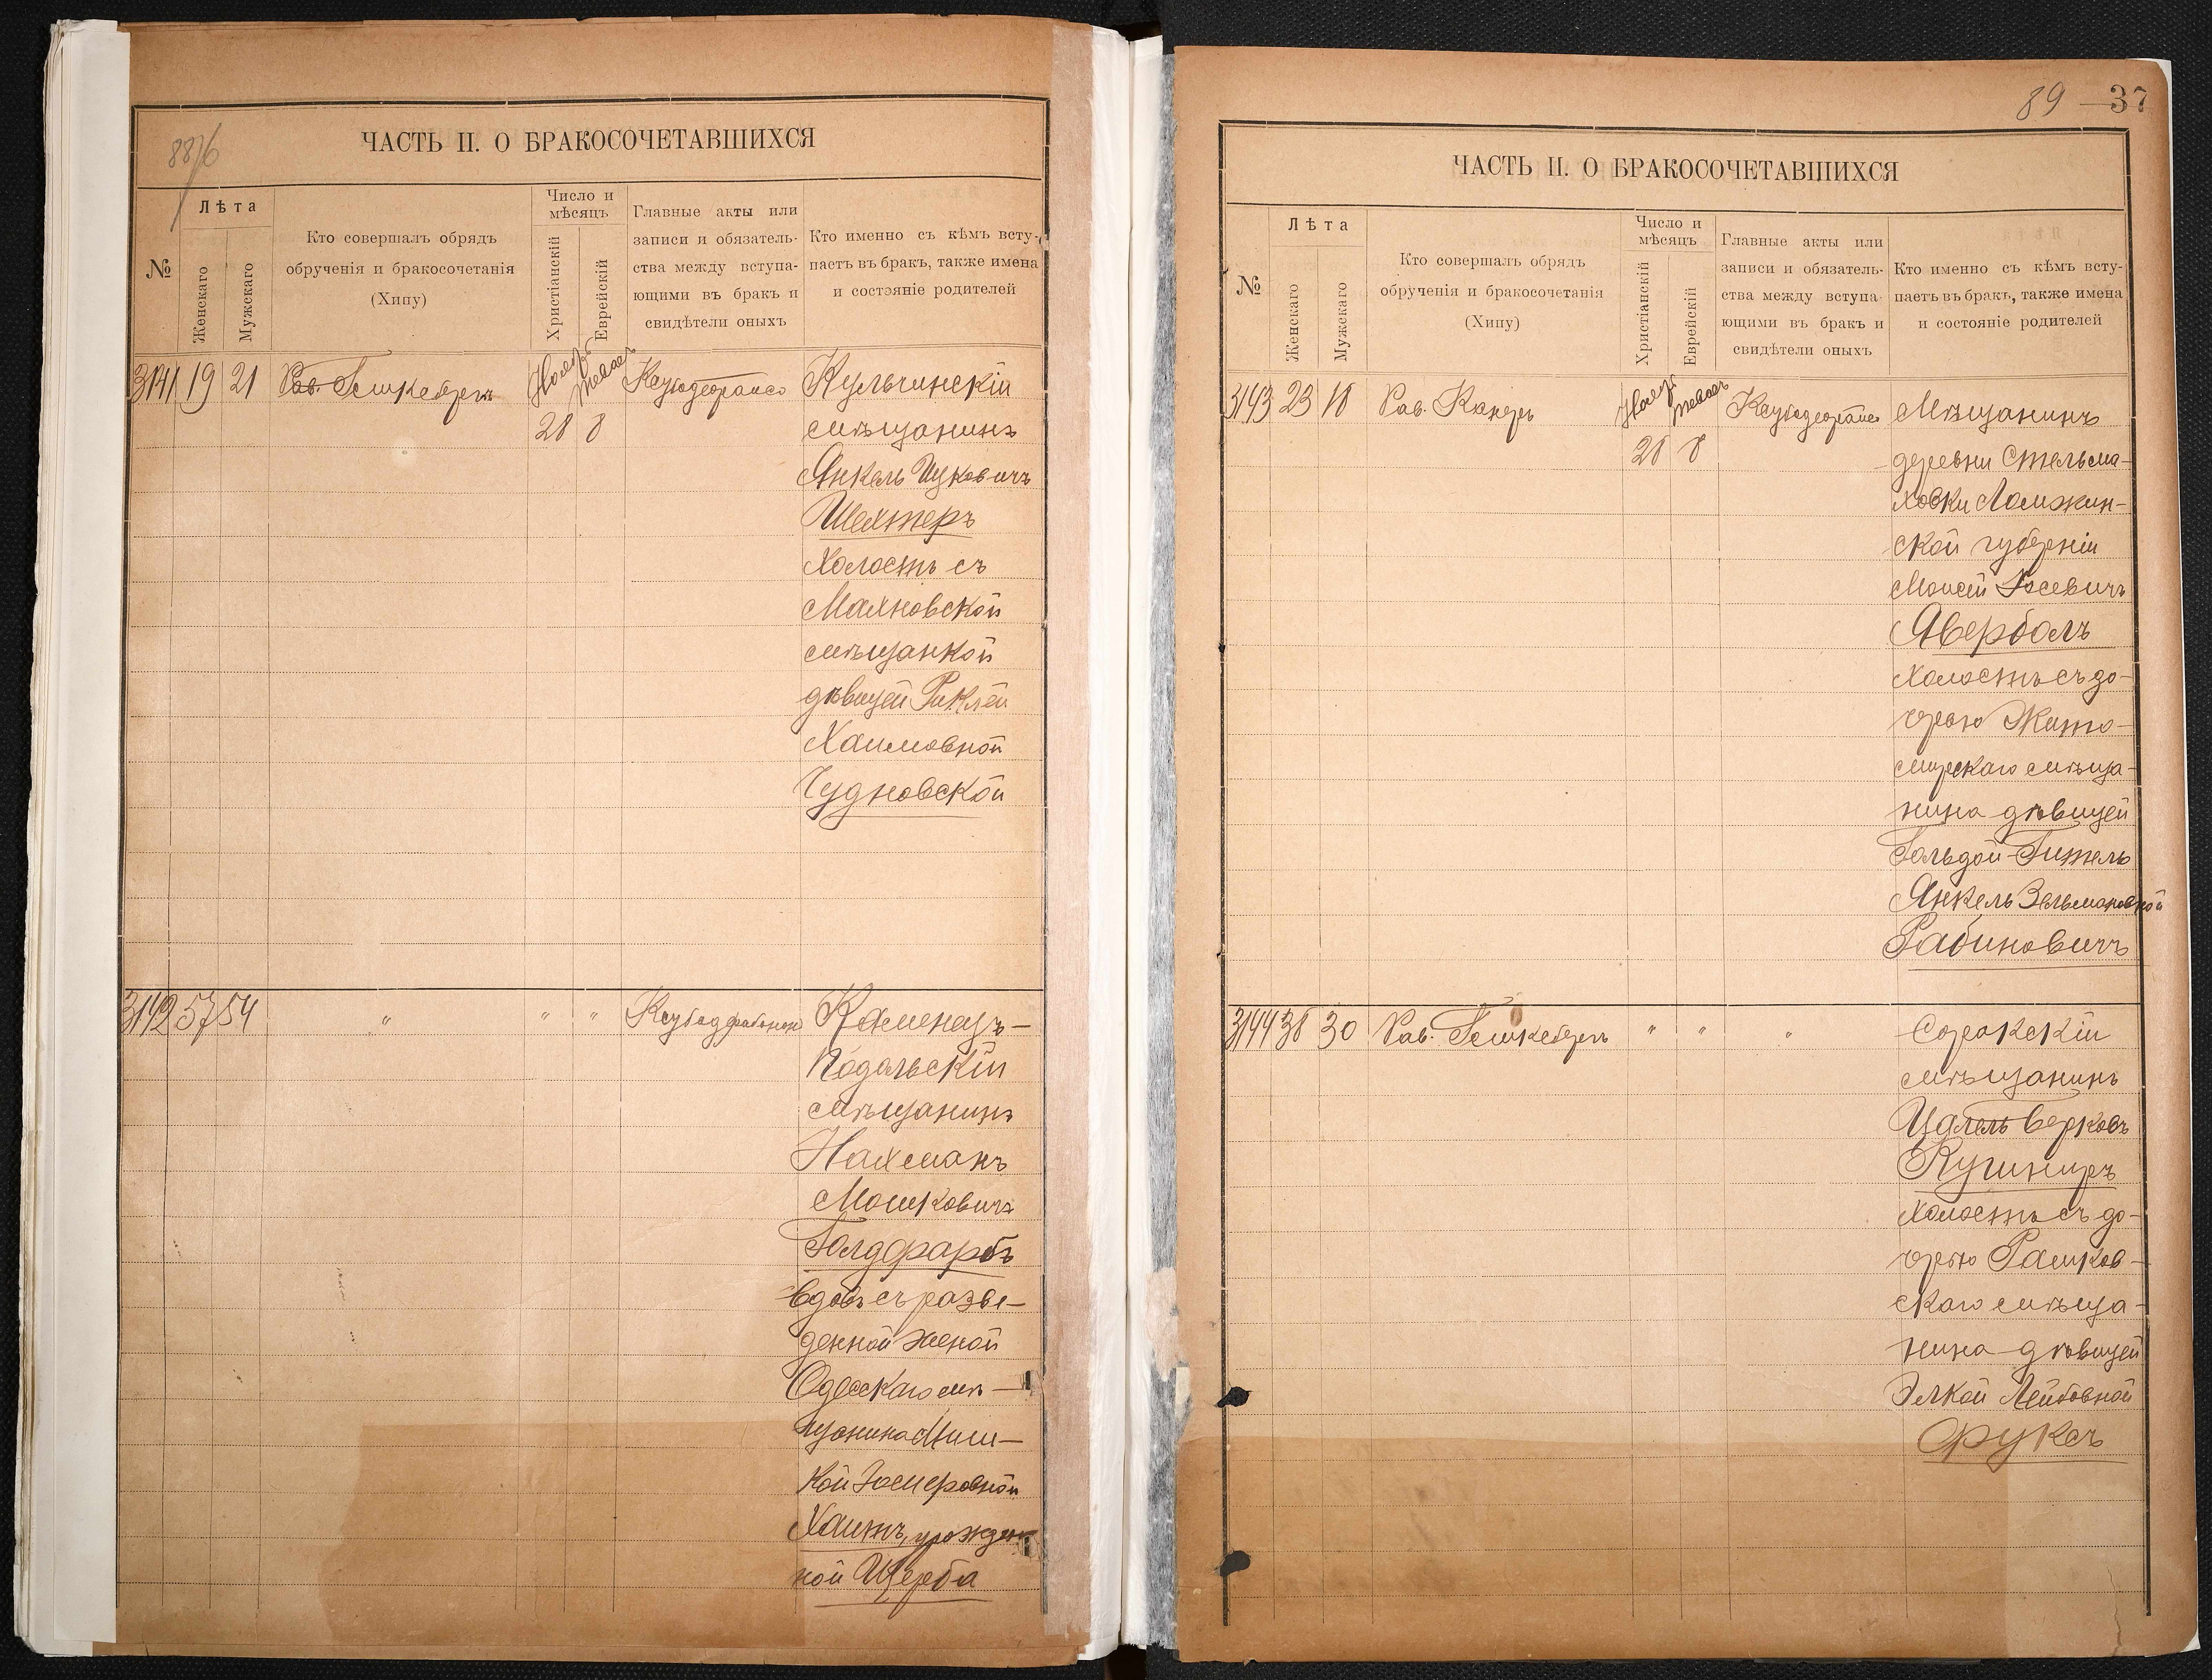 ЧАСТЬ II. О БРАКОСОЧЕТАВШИХСЯ
№
Лѣта
Женскаго
Мужскаго
Кто совершалъ обрядъ
обрученія и бракосочетанія
(Хипу)
Число и
мѣсяцъ
Христіанскій
Еврейскій
Главные акты или
записи и обязатель-
ства между вступа-
ющими въ бракъ и
свидѣтели оныхъ
Кто именно съ кѣмъ всту-
паетъ въ бракъ, также имена
и состояніе родителей
3141 19 21 Рав. 28 8 Кульчинскій
мѣщанинъ
Янкель Ицковичъ
Шехтеръ
Холостъ съ
Махновской
мѣщанкой
дѣвицей Риклей
Хаимовной
Чудновской
3142 57 54 " " " Каменецъ-
Подольскій
мѣщанинъ
Нахманъ
Мошковичъ
Голдфарбъ
вдовъ съ разве-
денной женой
Одесскаго мѣ-
щанина
кой
Хаитъ, урожден
ной Щерба
89 37
ЧАСТЬ II. О БРАКОСОЧЕТАВШИХСЯ
№
Лѣта
Женскаго
Мужскаго
Кто совершалъ обрядъ
обрученія и бракосочетанія
(Хипу)
Число и
мѣсяцъ
Христіанскій
Еврейскій
Главные акты или
записи и обязатель-
ства между вступа-
ющими въ бракъ и
свидѣтели оныхъ
Кто именно съ кѣмъ всту-
паетъ въ бракъ, также имена
и состояніе родителей
3143 23 18 Рав. 28 8 Мѣщанинъ
деревни Стельма-
ховки Ломжин-
ской губерніи
Моисей Іосевичъ
Авербахъ
Холостъ съ до-
черью Жито-
мирскаго мѣща-
нина дѣвицей
Гольдой-Гитель
Янкель Зельмановной
Рабиновичъ
3144 38 30 Рав. " " " Сорокскій
мѣщанинъ
Берковъ
Кушниръ
Холостъ съ до-
черью Рашков-
скаго мѣща-
нина дѣвицей
Элкой Лейбовной
Фуксъ